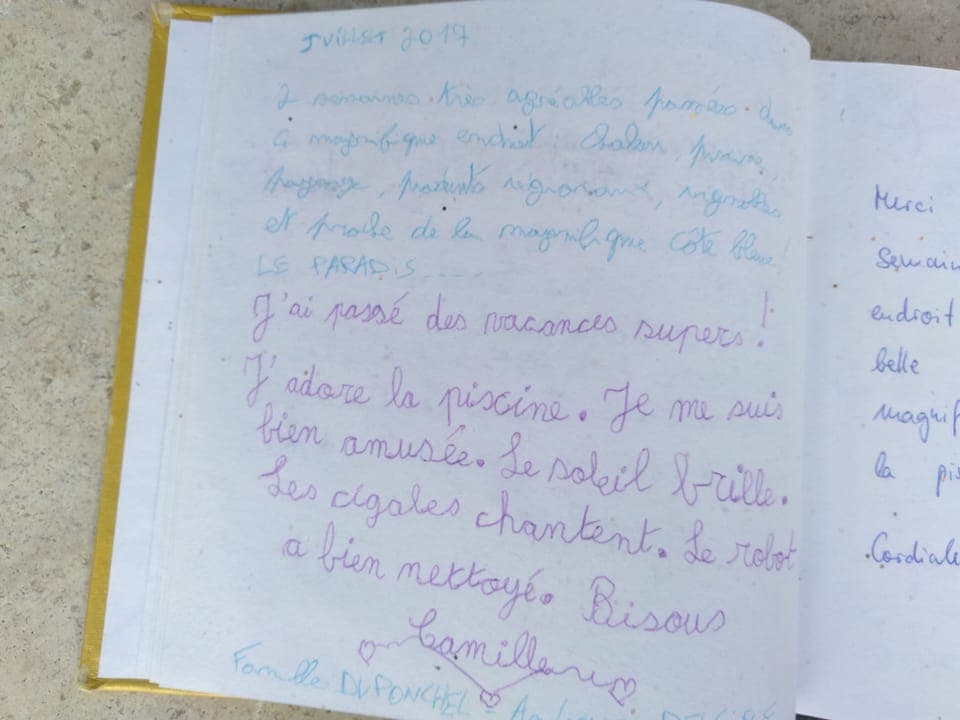 JUILLET 2017
2 semaines très agréables passées dans
ce magnifique endroit. Chaleur, piscine,
paysage, produits régionaux, vignobles
et proche de la magnifique Côte bleue!
LE PARADIS.....
J'ai passé des vacances supers!
J'adore la piscine. Je me suis
bien amusée. Le soleil brille.
Les cigales chantent. Le robot
a bien nettoyé. Bisous
Camille
Famille DUPONCHEL -
Merci
Semain
endroit
belle
magnif
la pis
Cordiale